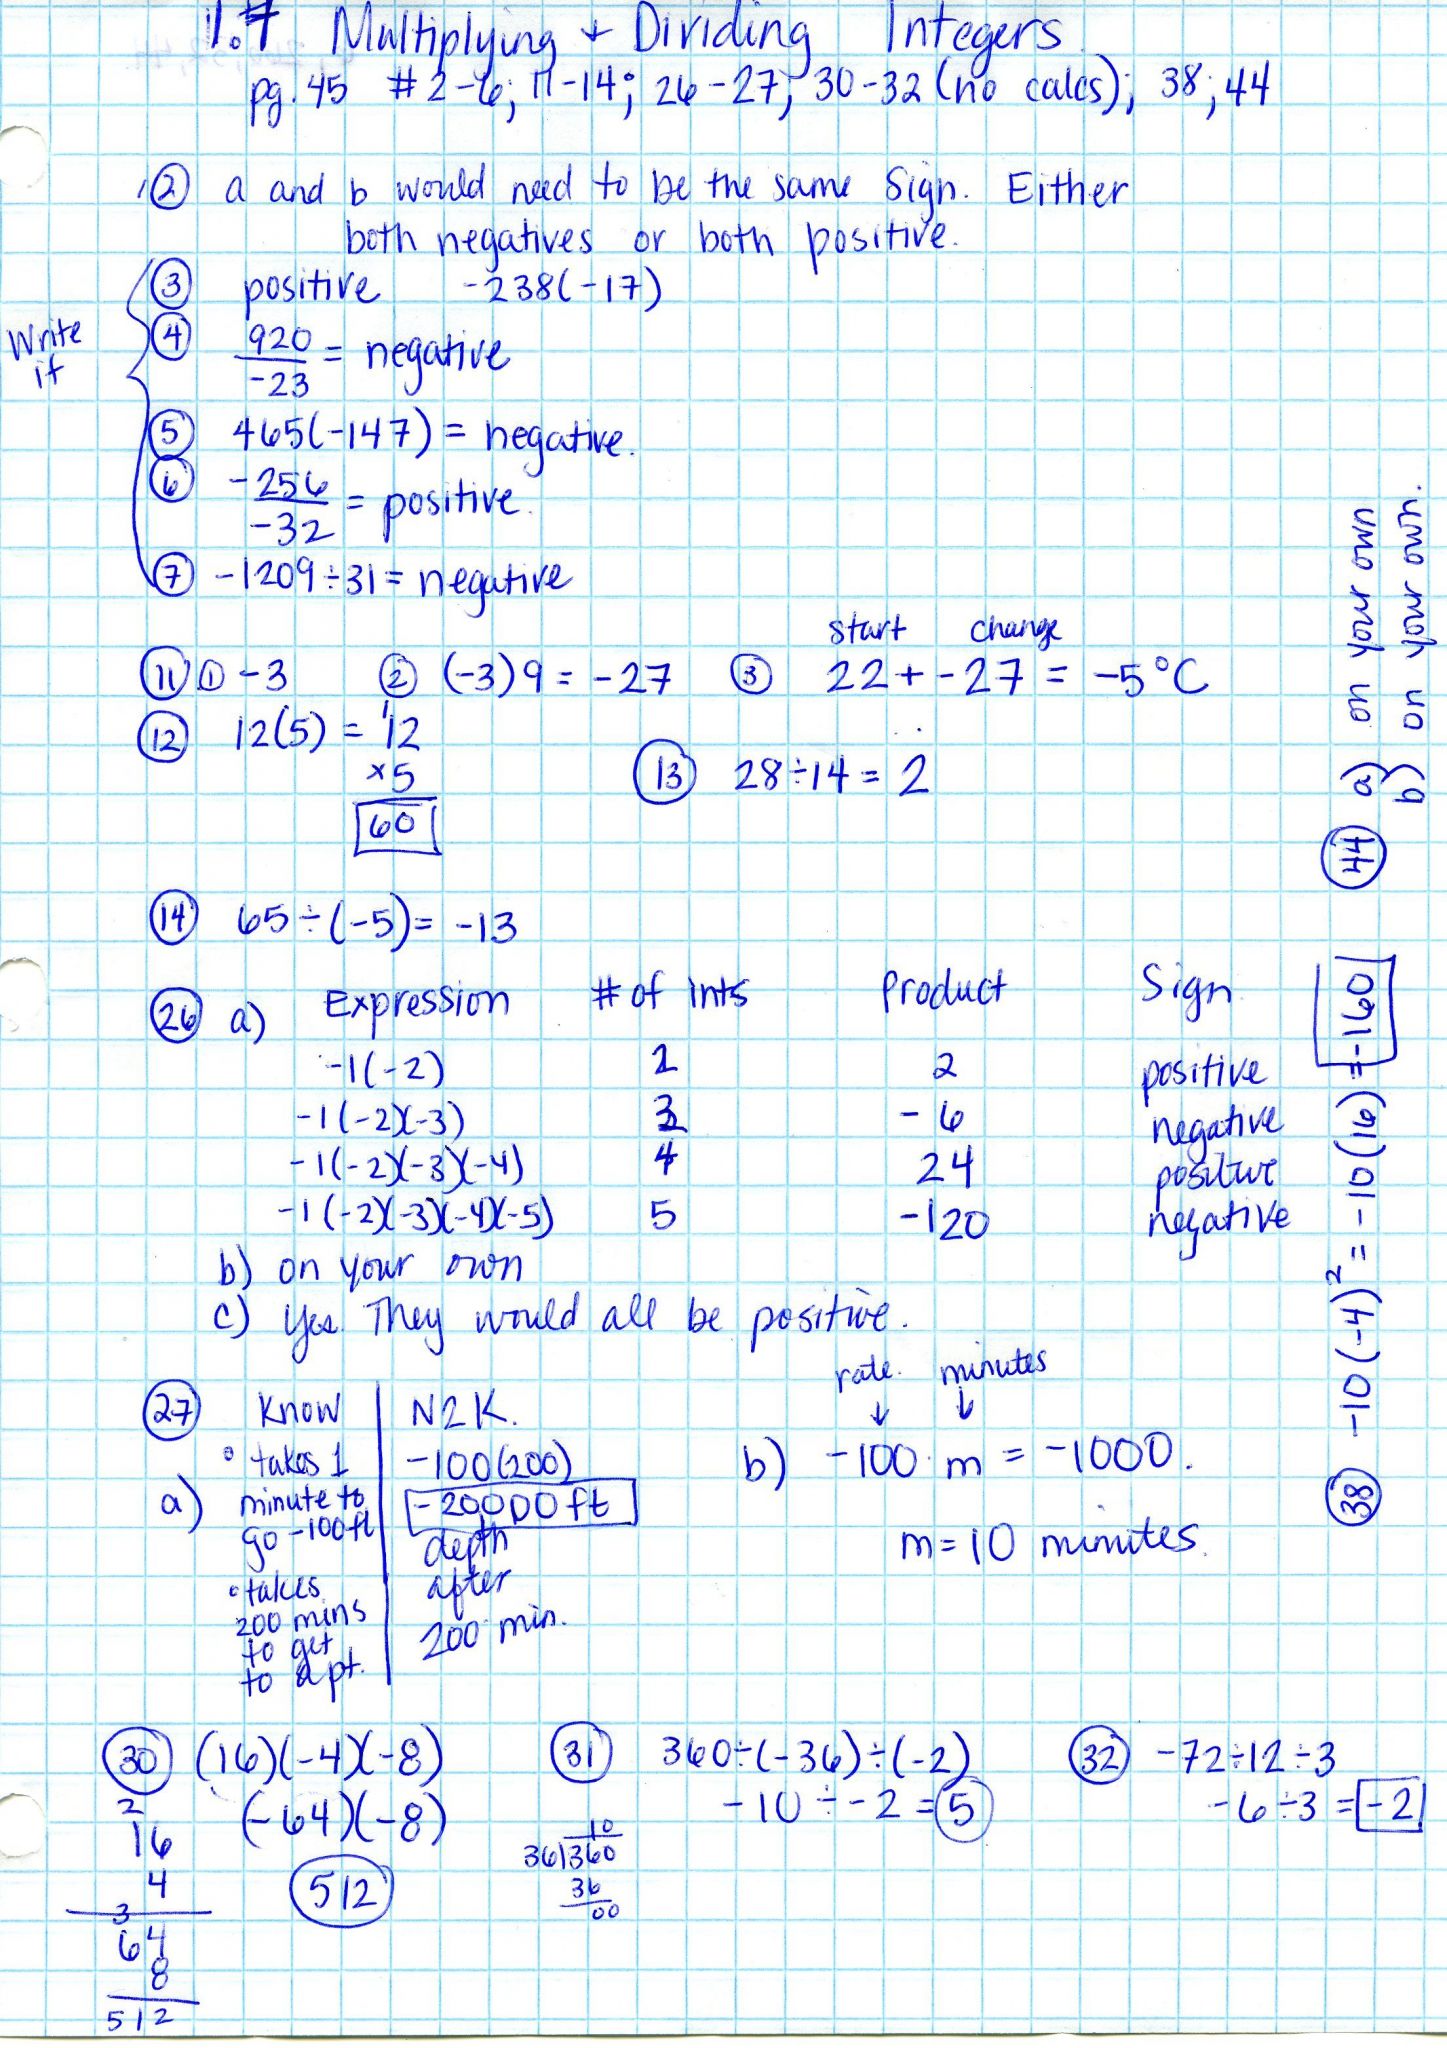 1.7 Multiplying + Dividing Integers
pg. 45 #2-6; 11-14; 26-27; 30-32 (no calcs); 38; 44
② a and b would need to be the same sign. Either
both negatives or both positive.
Write
it
③ positive -238(-17)
④ 920/-23 = negative
⑤ 465(-147) = negative.
⑥ -256/-32 = positive.
⑦ -1209÷31 = negative
start change
⑪ ① -3 ② (-3)9 = -27 ③ 22 + -27 = -5°C
⑫ 12(5) = 12
1
×5
60
⑬ 28÷14 = 2
⑭ 65÷(-5) = -13
㉖ a) Expression # of ints Product Sign
-1(-2) 2 2 positive
-1(-2)(-3) 3 -6 negative
-1(-2)(-3)(-4) 4 24 positive
-1(-2)(-3)(-4)(-5) 5 -120 negative
b) on your own
c) Yes. They would all be positive.
㉗ Know N2K.
a)
• takes 1
minute to
go -100ft
• takes
200 mins
to get
to a pt.
-100(200)
-20000 ft
depth
after
200 min.
rate. minutes
↓ ↓
b) -100 · m = -1000.
m = 10 minutes.
㉚ (16)(-4)(-8)
(-64)(-8)
512
2
16
4
3
64
8
512
㉛ 360÷(-36)÷(-2)
-10 ÷ -2 = 5
10
36)360
36
00
㉜ -72÷12÷3
-6÷3 = -2
㊳ -10(-4)² = -10(16) = -160
㊹ a) on your own
b) on your own.